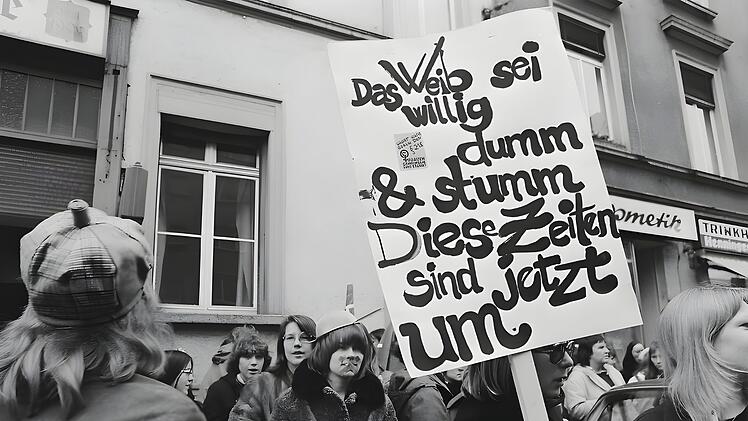 Das Weib sei
willig
dumm
& stumm
Diese Zeiten
sind jetzt
um
ometik
TRINKH
Henninger